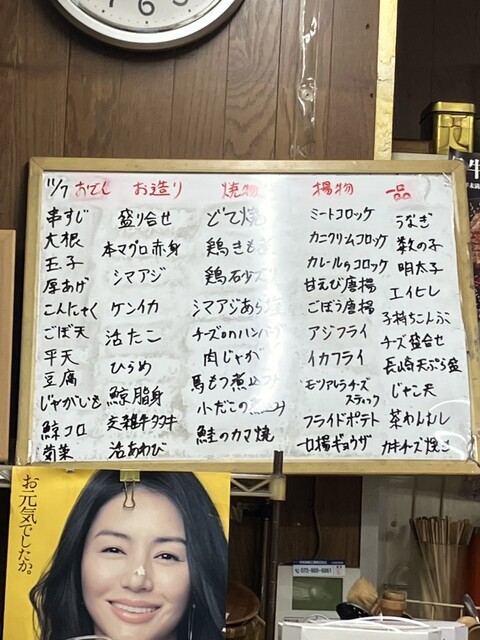 11/7 おでん
串すじ
大根
玉子
厚あげ
こんにゃく
ごぼ天
平天
豆腐
じゃがいも
鯨コロ
菊菜
お造り
盛り合せ
本マグロ赤身
シマアジ
ケンイカ
活たこ
ひらめ
鯨脂身
交雑牛タタキ
活あわび
焼物
どて焼
鶏きもぎ
鶏石少ズリ
シマアジあら焼
チーズonハンバーグ
肉じゃが
馬もつ煮込み
小だこの煮込み
鮭のカマ焼
揚物
ミートコロッケ
カニクリームコロッケ
カレールゥコロッケ
甘えび唐揚
ごぼう唐揚
アジフライ
イカフライ
モツアレラチーズ
スティック
フライドポテト
揚ギョウザ
一品
うなぎ
数の子
明太子
エイヒレ
子持ちこんぶ
チーズ盛合せ
長崎天ぷら盛
じゃこ天
茶わんむし
カキチーズ焼き
お元気でしたか。